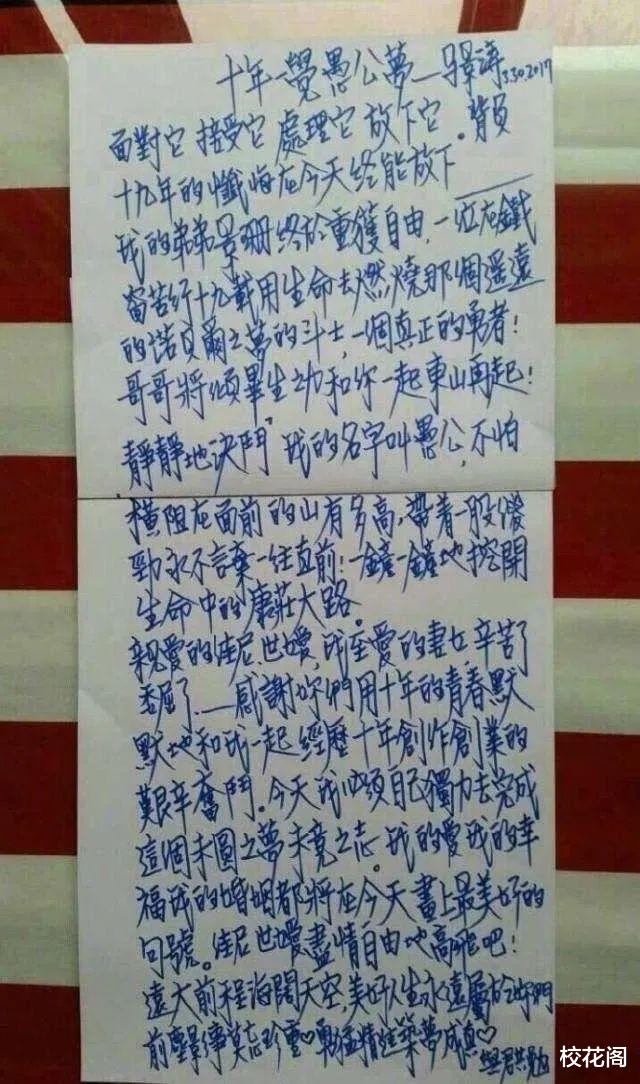 十年一覺愚公夢—景濤3302017
面對它 接受它 處理它 放下它。背負
十九年的懺悔在今天终能放下——
我的弟弟景珊终於重獲自由,一位在鐵
窗苦行十九載用生命去燃燒那個遥遠
的諾貝爾之夢的斗士,一個真正的勇者!
哥哥將傾畢生之力和你一起東山再起!
靜靜地決鬥,我的名字叫愚公,不怕
橫阻在面前的山有多高,帶着一股傻
勁永不言棄一往直前!一鏟一鏟地挖開
生命中的康莊大路。
親愛的佳尼、世嬡,我至愛的妻女,辛苦了
委屈了——感謝妳們用十年的青春默
默地和我一起經歷十年創作創業的
艱辛奮鬥。今天我必須自己獨力去完成
這個未圓之夢未竟之志。我的愛我的幸
福我的婚姻都將在今天畫上最美好的
句號。佳尼世嬡盡情自由地高飛吧!
遠大前程海闊天空,美好人生永遠屬於妳們
前塵緣莫忘珍重♡勇猛精進築夢成真♡
與君共勉
校花阁